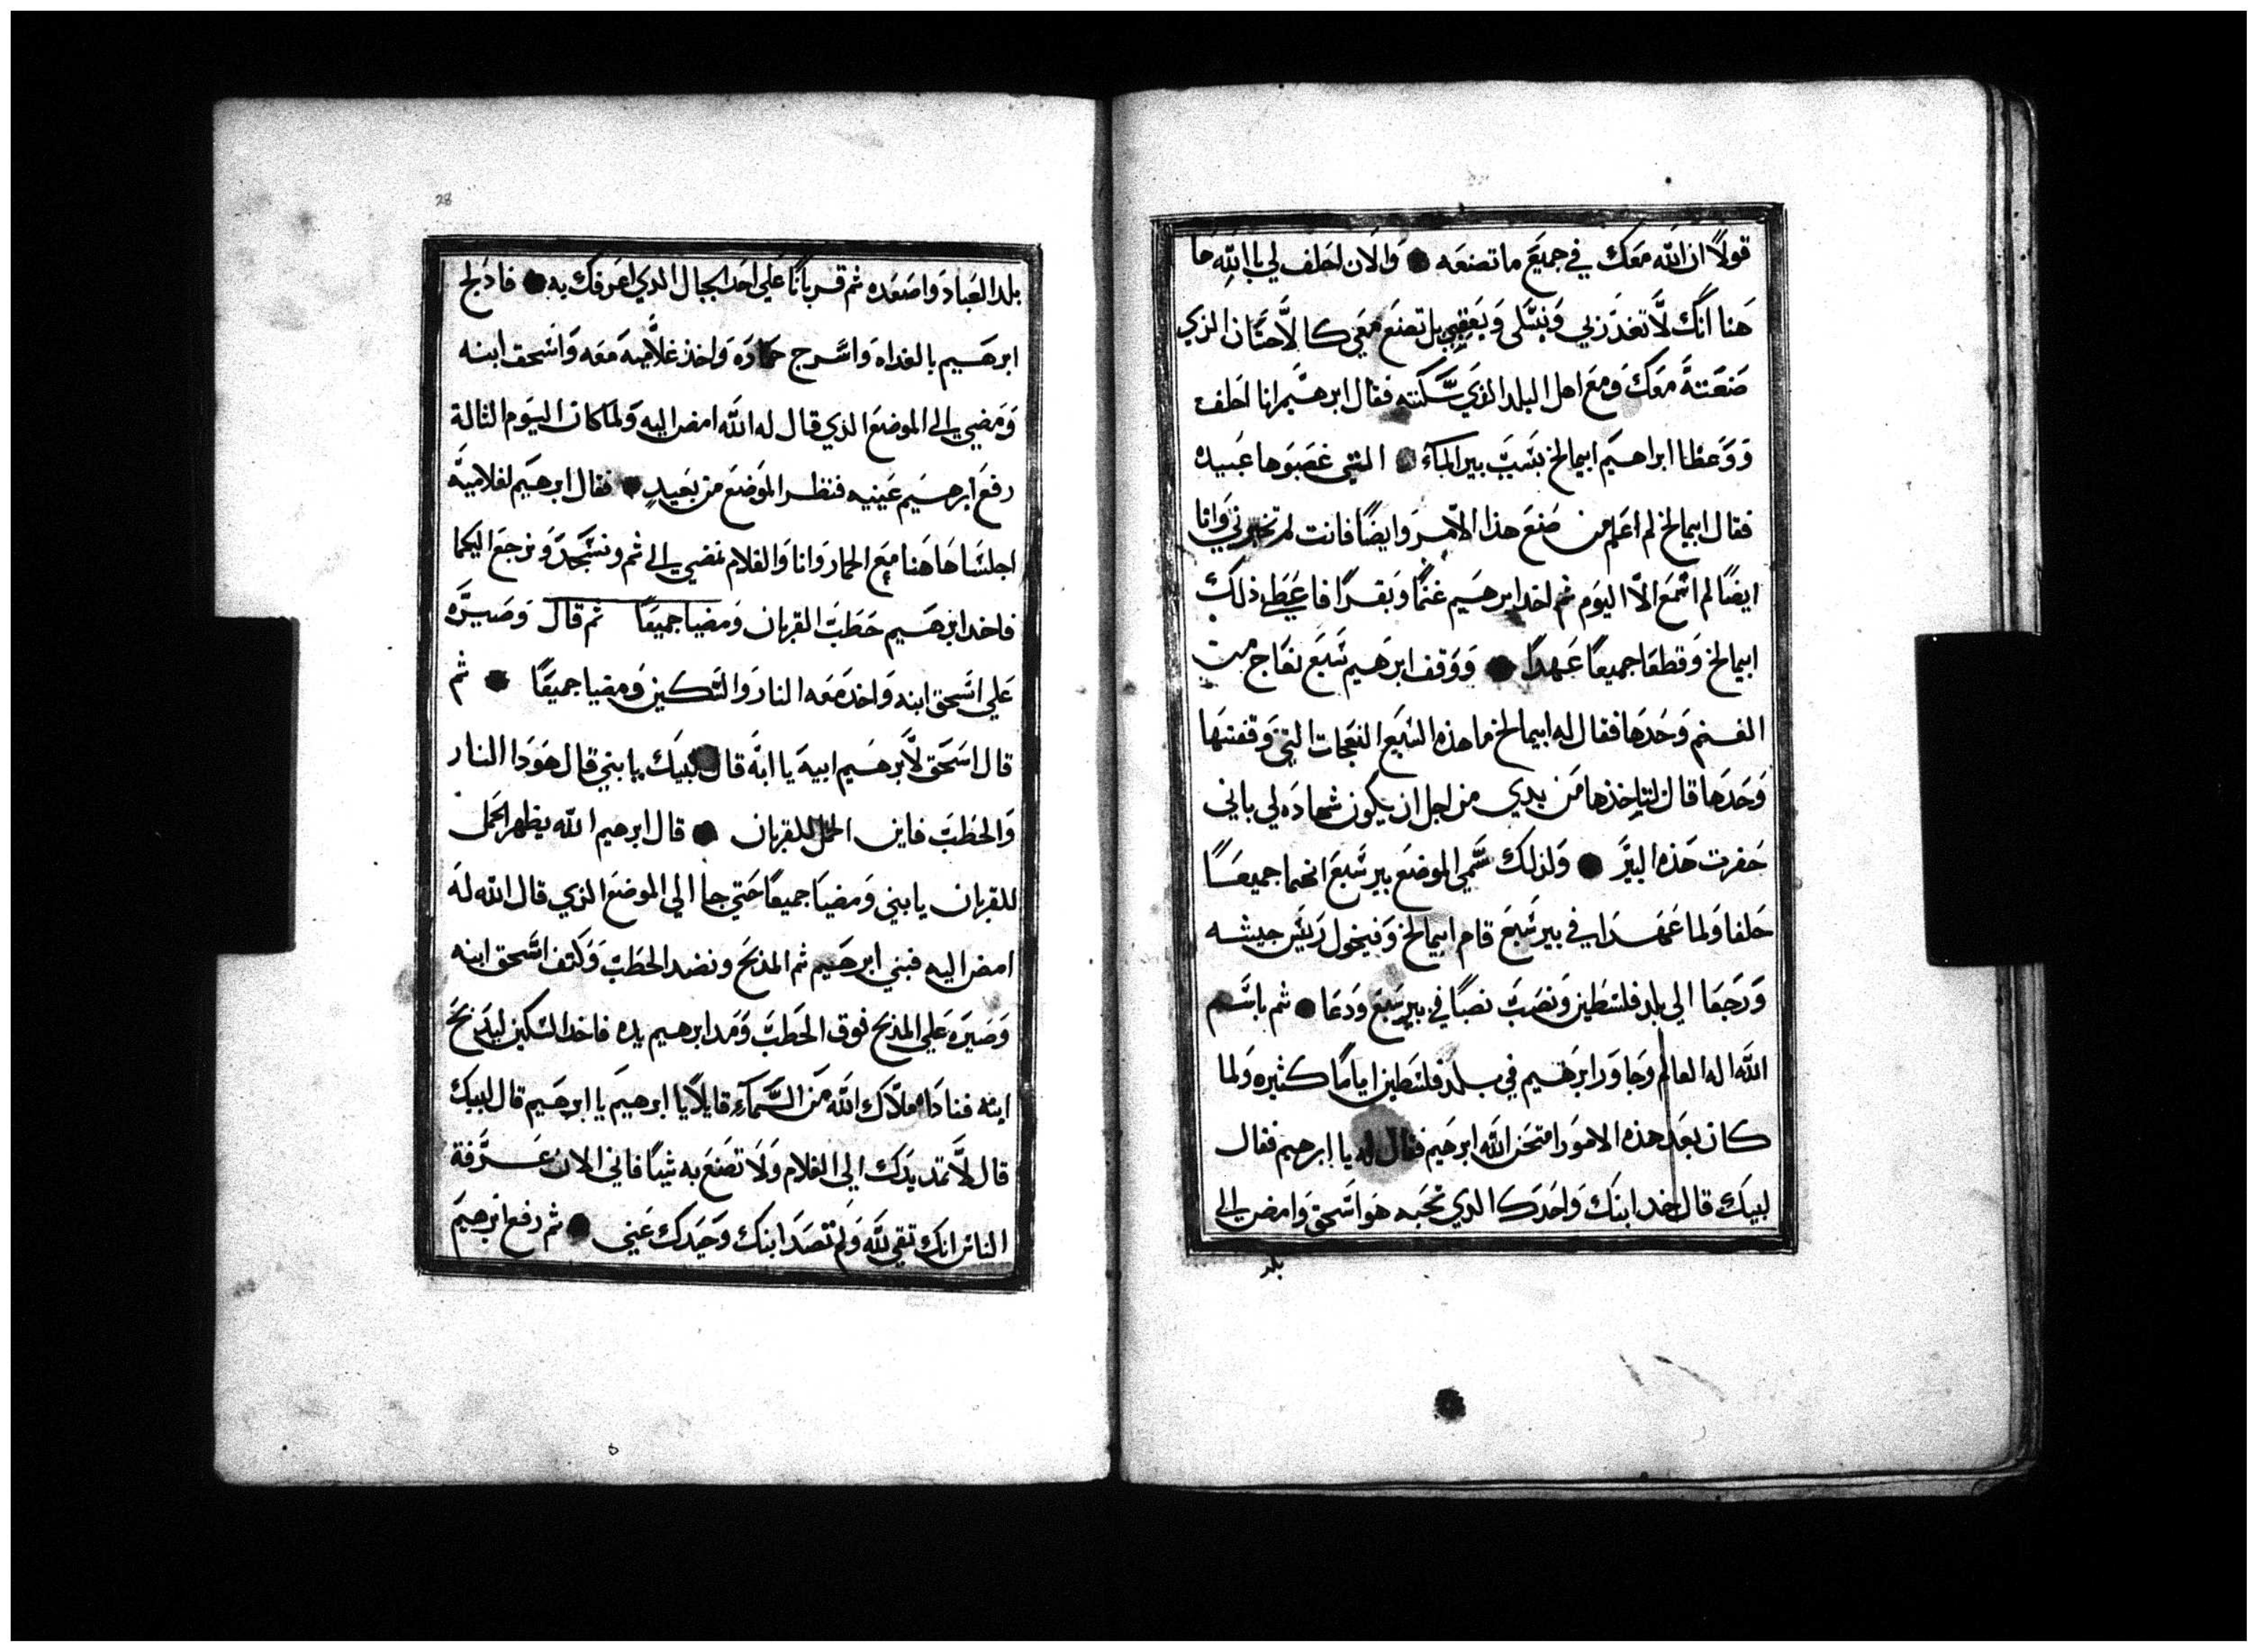 قولاً ان الله معك في جميع ما تصنعه ● والان احلف لي بالله ها
هنا انك لا تغدر بي وبنسلى وبعقبي بل تصنع معي كالاحتان الذي
صنعتة معك ومع اهل البلد الذي سكنته فقال ابرهيم انا احلف
ووعظا ابراهيم ابيمالخ بسبب بير الماء ● التي غصبوها عبيده
فقال ابيمالخ لم اعلم من صنع هذا الامر وايضاً فانت لم تخبرني وانا
ايضاً لم اسمع الا اليوم ثم اخد ابرهيم غنماً وبقراً فاعطى ذلك
ابيمالخ وقطعا جميعاً عهداً ● ووقف ابرهيم سبع نعاج من
الغنم وحدها فقال له ابيمالخ ما هذه السبع النعجات التي وقفتها
وحدها قال لتاخذها من يدي من اجل ان يكون شهاده لي باني
حفرت هذه البير ● ولذلك سمي الموضع بير سبع انهما جميعا
حلفا ولما عهدا في بير سبع قام ابيمالخ وفيخول رئيس جيشه
ورجعا الي بلد فلسطين ونصب نصباً في بير سبع ودعا ● ثم باسم
الله اله العالم وجاور ابرهيم في بلد فلسطين اياماً كثيره ولما
كان بعد هذه الامور امتحن الله ابرهيم فقال له يا ابرهيم فقال
لبيك قال خد ابنك واحدك الدي تحبه هو اسحق وامض الي
بلد
28
بلد العباد واصعده ثم قرباناً علي احد الجبال الدي اعرفك به ● فادلج
ابرهيم بالغداه واسرج حماره واخذ غلاميه معه واسحق ابنه
ومضي الي الموضع الدي قال له الله امض اليه ولما كان اليوم التالة
رفع ابرهيم عينيه فنظر الموضع من بعيد ● فقال ابرهيم لغلاميه
اجلسا هاهنا مع الحمار وانا والغلام نمضي الي ثم ونسجد ونرجع اليكما
فاخد ابرهيم حطب القربان ومضيا جميعاً ثم قال وصيره
علي اسحق ابنه واخد معه النار والسكين ومضيا جميعاً ● ثم
قال اسحق لابرهيم ابيه يا ابه قال لبيك يا بني قال هودا النار
والحطب فاين الحمل للقربان ● قال ابرهيم الله يظهر الحمل
للقربان يا بني ومضيا جميعاً حتي جا الي الموضع الذي قال الله له
امض اليه فبني ابرهيم ثم المذبح ونضد الحطب وكتف اسحق ابنه
وصيره علي المذبح فوق الحطب ومد ابرهيم يده فاخد السكين ليدبح
ابنه فناداه ملاك الله من السماء قايلاً يا ابرهيم يا ابرهيم قال لبيك
قال لا تمد يدك الي الغلام ولا تصنع به شياً فاني الان عرفة
الناس انك تقي لله ولم تصد ابنك وحيدك عني ● ثم رفع ابرهيم